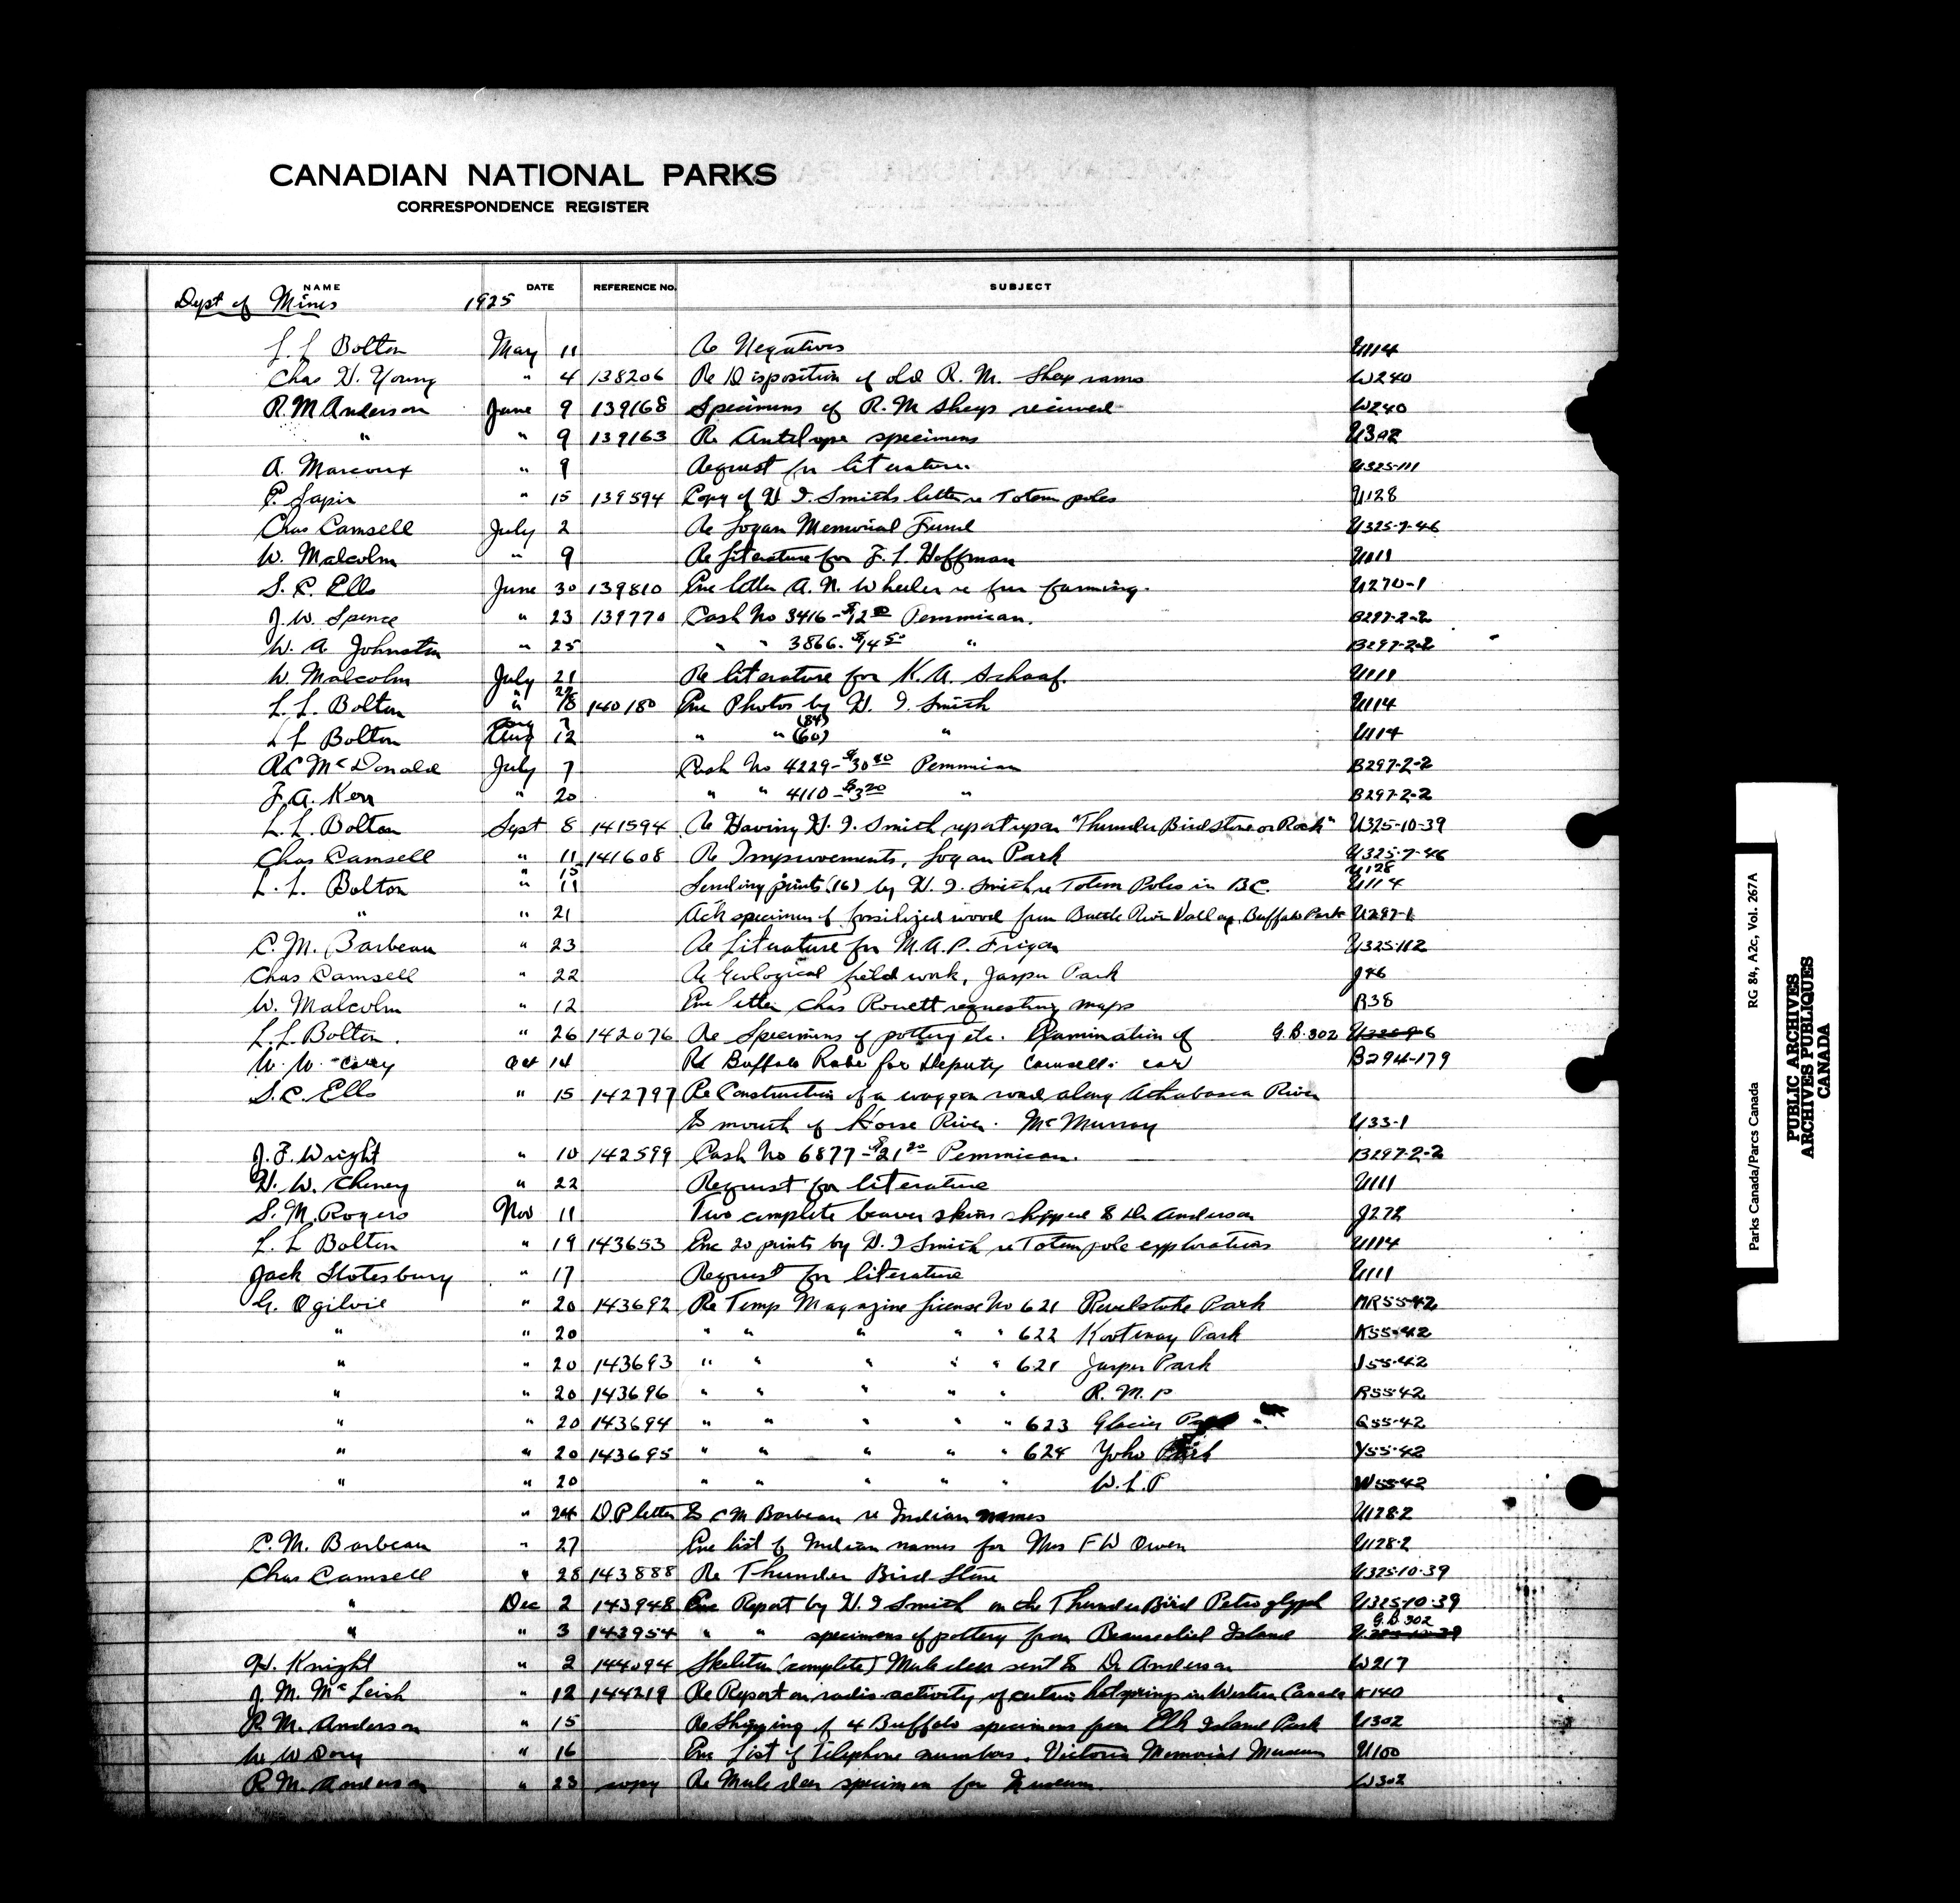 CANADIAN NATIONAL PARKS
CORRESPONDENCE REGISTER
NAME DATE REFERENCE No. SUBJECT
Dept of Mines 1925
L. L Bolton May 11 Re Negatives U114
Chas H. Young " 4 138206 Re Disposition of old R. M. Sheep rams W240
R. M Anderson June 9 139168 Specimens of R. M Sheep received W240
" " 9 139163 Re Antelope specimens U302
A. Marcoux " 9 Request for literature U325-111
E. Sapir " 15 139594 Copy of H I. Smiths letter re Totem poles U128
Chas Camsell July 2 Re Logan Memorial Fund U325-7-46
W. Malcolm " 9 Re literature for F. L. Hoffman U111
S. C. Ells June 30 139810 Enc letter A. N. Wheeler re fur farming. U270-1
J. W. Spence " 23 139770 Cash No 3416 - $12 00 Pemmican. B297-2-2
W. A Johnston " 25 " " 3866. $14 50 " B297-2-2
W. Malcolm July 21 Re literature for K. A. Schaaf. U111
L. L. Bolton " 28 140180 Enc Photos by H. I. Smith U114
L L Bolton Aug 12 " " (84) (60) " U114
R C McDonald July 7 Cash No 4229 - $30 80 Pemmican B297-2-2
F. A. Kerr " 20 " " 4110 - $3 20 " B297-2-2
L. L. Bolton Sept 8 141594 Re Having H. I. Smith report upon "Thunder Bird Stone or Rock" U325-10-39
Chas Camsell " 11 141608 Re Improvements, Logan Park U325-7-46
L. L. Bolton " 15 " 11 Sending prints (16) by H. I. Smith re Totem Poles in BC. U128 U114
" " 21 Ack specimen of fossilized wood from Battle River Valley, Buffalo Park U297-1
C. M. Barbeau " 23 Re Literature for M. A. P. Frigon U325-112
Chas Camsell " 22 Re Geological field work, Jasper Park J46
W. Malcolm " 12 Enc letter Chas Rowett requesting maps R38
L. L. Bolton. " 26 142076 Re Specimens of pottery etc. Examination of G.B. 302
W. W. Cory Oct 14 Re Buffalo Robe for Deputy Camsell's car B294-179
S. C. Ells " 15 142797 Re Construction of a waggon road along Athabasca River
to mouth of Horse River. McMurray U33-1
J. F. Wright " 10 142599 Cash No 6877 - $21 20 Pemmican. B297-2-2
H. W. Cheney " 22 Request for literature U111
S. M. Rogers Nov 11 Two complete beaver skins shipped to Dr Anderson J272
L. L Bolton " 19 143653 Enc 20 prints by H. I Smith re Totem pole explorations U114
Jack Stotesbury " 17 Request for literature U111
G. Ogilvie " 20 143692 Re Temp Magazine license No 621 Revelstoke Park MR55-42
" " 20 " " " " " 622 Kootenay Park K55-42
" " 20 143693 " " " " " 621 Jasper Park J55-42
" " 20 143696 " " " " " R. M. P R55-42
" " 20 143694 " " " " " 623 Glacier Park G55-42
" " 20 143695 " " " " " 624 Yoho Park Y55-42
" " 20 " " " " " W. L. P W55-42
" 24 D. P letter to C M Barbeau re Indian names U128-2
C. M. Barbeau " 27 Enc list of Indian names for Mrs F W Owen U128-2
Chas Camsell " 28 143888 Re Thunder Bird Stone U325-10-39
" Dec 2 143948 Enc Report by H. I Smith on the Thunder Bird Petroglyph U325-10-39
" " 3 143954 " " specimens of pottery from Beausoliel Island G.B. 302
H. Knight " 2 144094 Skeleton (complete) Mule deer sent to Dr Anderson W217
J. M. McLeish " 12 144219 Re Report on radio-activity of certain hot springs in Western Canada K140
R. M. Anderson " 15 Re Shipping of 4 Buffalo specimens from Elk Island Park U302
W W Cory " 16 Enc List of Telephone numbers. Victoria Memorial Museum U100
R. M. Anderson " 23 copy Re Mule deer specimen for Museum. W302
Parks Canada/Parcs Canada RG 84, A2c, Vol. 267A
PUBLIC ARCHIVES
ARCHIVES PUBLIQUES
CANADA